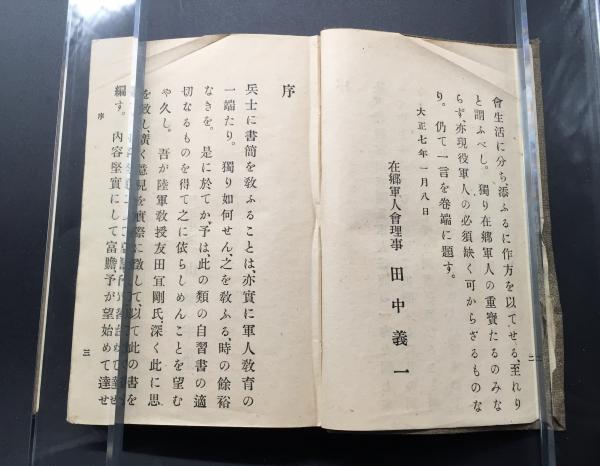 會生活に分ち添ふるに作方を以てせる、至れり
と謂ふべし。獨り在鄕軍人の重寶たるのみな
らず、亦現役軍人の必須缺く可からざるものな
り。仍て一言を卷端に題す。
大正七年一月八日
在鄕軍人會理事 田中義一
二
序
兵士に書簡を敎ふることは、亦實に軍人敎育の
一端たり。獨り如何せん、之を敎ふる、時の餘裕
なきを。是に於てか、予は、此の類の自習書の適
切なるものを得て之に依らしめんことを望む
や久し。吾が陸軍敎授友田宜剛氏、深く此に思
を致し、廣く意見を實際に徴して以て此の書を
編す。內容堅實にして富贍、予が望始めて達せ
序
三